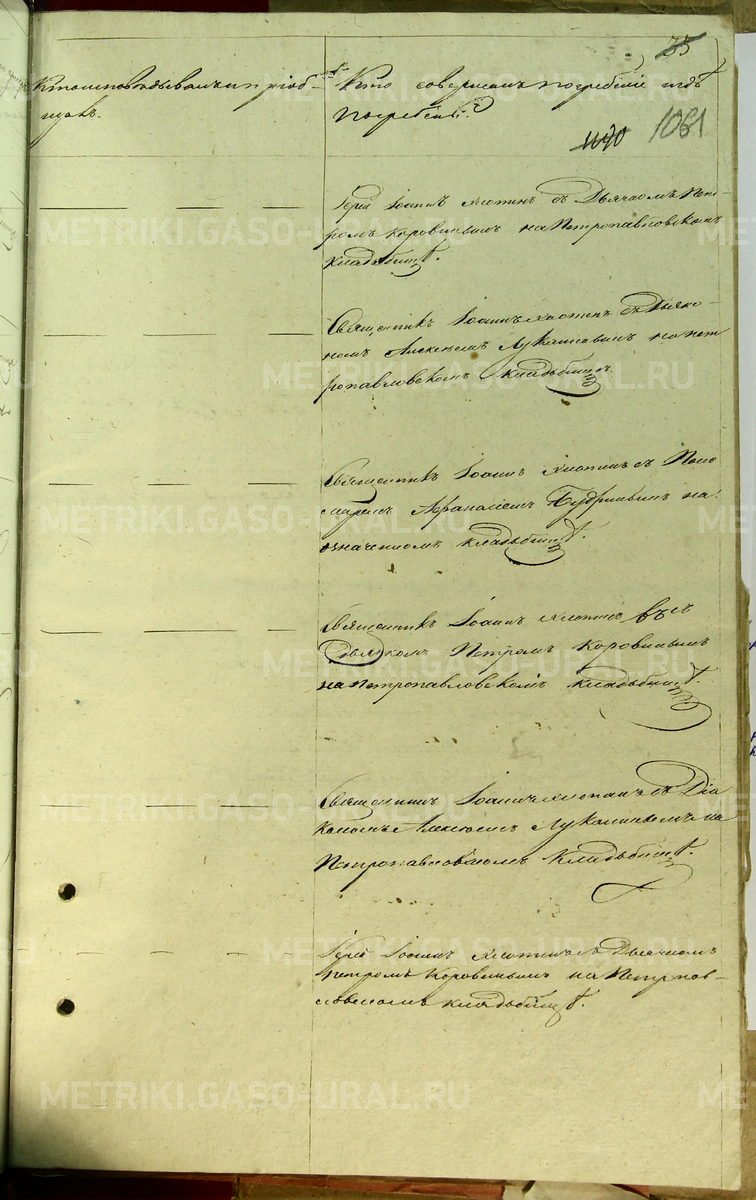 35
Кто исповѣдывалъ и пріоб-
щалъ.
Кто совершалъ погребеніе и гдѣ
погребены?
1170 1061
Іерей Іоаннъ съ Дьячкомъ Пет-
ромъ Коровинымъ на Петропавловскомъ
кладбищѣ.
Священникъ Іоаннъ съ Дьяко-
номъ Алексѣемъ Луканинымъ на Пет
ропавловскомъ кладбищѣ.
Священникъ Іоаннъ съ Поно
маремъ Афанасіемъ Будринымъ на
означенномъ кладбищѣ.
Священникъ Іоаннъ съ
Дьячкомъ Петромъ Коровинымъ
на Петропавловскомъ кладбищѣ.
Священникъ Іоаннъ съ Діа
кономъ Алексѣемъ Луканинымъ на
Петропавловскомъ кладбищѣ.
Іерей Іоаннъ съ Дьячкомъ
Петромъ Коровинымъ на Петропав-
ловскомъ кладбищѣ.
METRIKI.GASO-URAL.RU